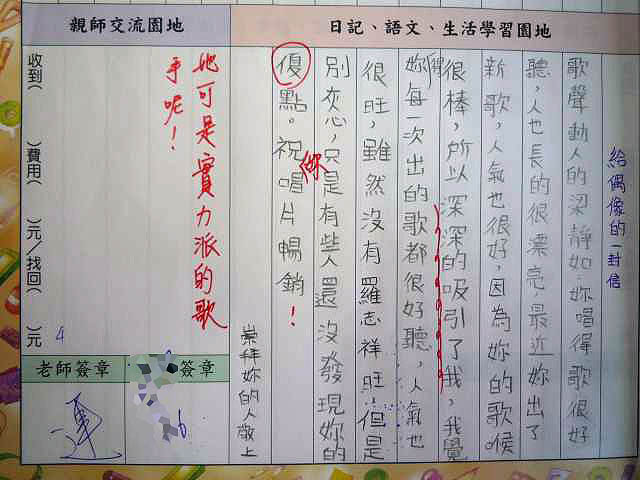 親師交流園地
日記、語文、生活學習園地
給偶像的一封信
歌聲動人的梁靜如:妳唱得歌很好
聽,人也長的很漂亮,最近妳出了
新歌,人氣也很好,因為妳的歌喉
很棒,所以深深的吸引了我,我覺得
妳每一次出的歌都很好聽,人氣也
很旺,雖然沒有羅志祥旺,但是
別灰心,只是有些人還沒發現妳的
優點。祝妳唱片暢銷!
崇拜妳的人敬上
她可是實力派的歌
手呢!
收到( )費用( )元/找回( )元
老師簽章
簽章